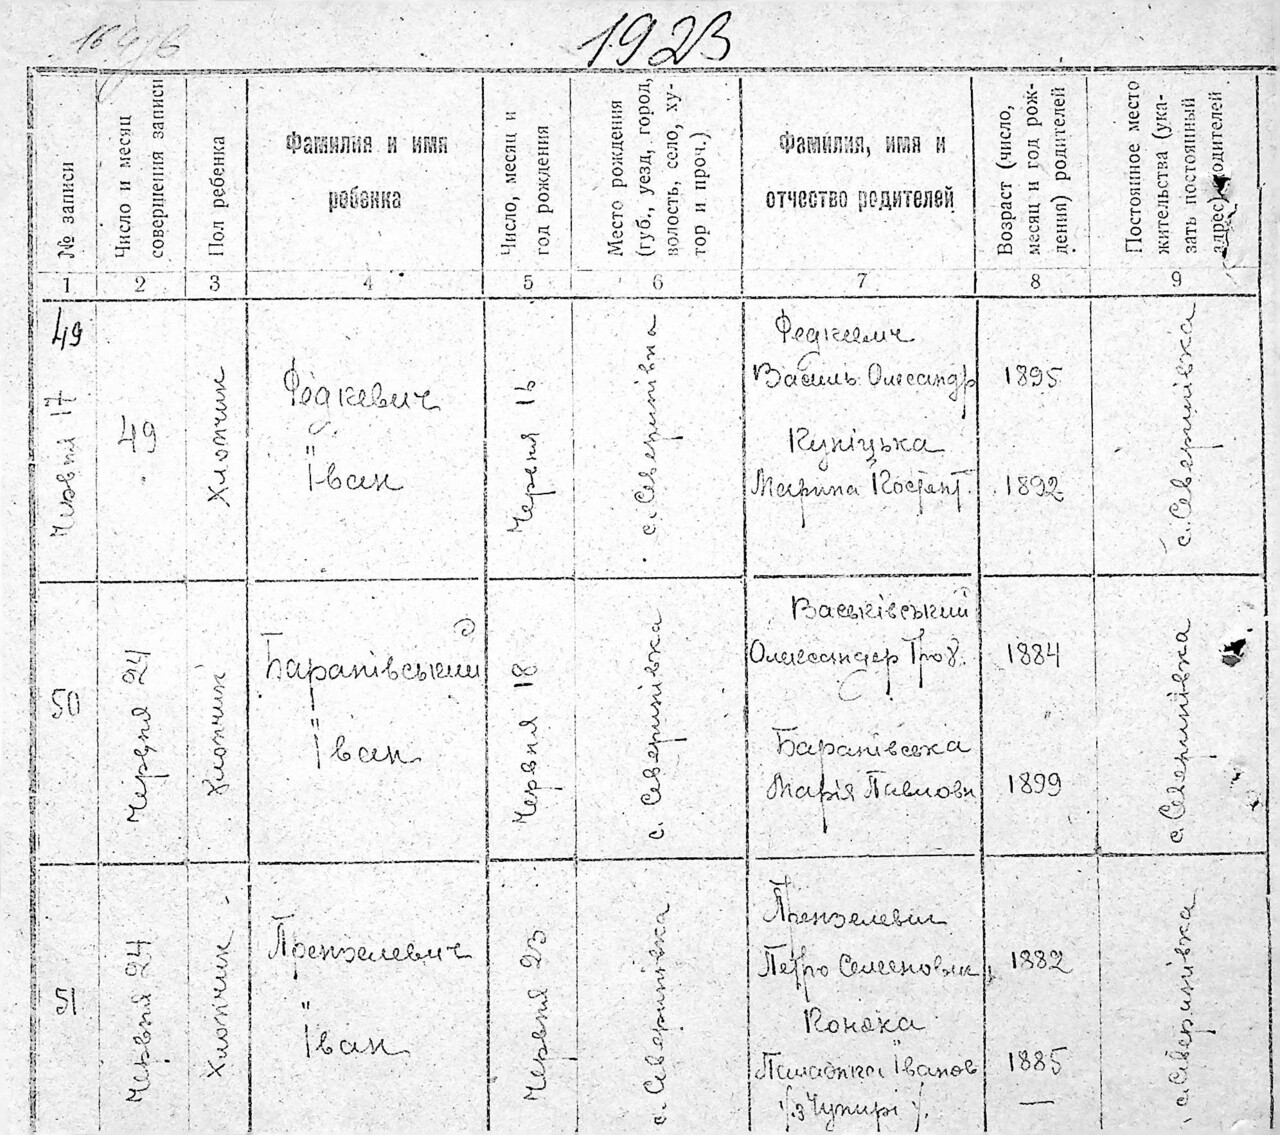 1923
№ записи
Число и месяц
совершения записи
Пол ребенка
Фамилия и имя
ребенка
Число, месяц и
год рождения
Место рождения
(губ., уезд, город,
волость, село, ху-
тор и проч.)
Фамилия, имя и
отчество родителей
Возраст (число,
месяц и год рож-
дения) родителей
Постоянное место
жительства (ука-
зать постоянный
адрес) родителей
1 2 3 4 5 6 7 8 9
49
Червня 17
49
Хлопчик
Федкевич
Іван
Червня 16
с. Северинівка
Федкевич
Василь Олександр
1895
Куніцька
Марина Костянт.
1892
с. Северинівка
50
Червня 24
Хлопчик
Баранівський
Іван
Червня 18
с. Северинівка
Васьківський
Олександер
1884
Баранівська
Марія Павловн
1899
с. Северинівка
51
Червня 24
Хлопчик
Прензелевич
Іван
Червня 23
с. Северинівка
Прензелевич
Петро Семеновик
1882
Конека
Іванов
1885
—
с. Северинівка